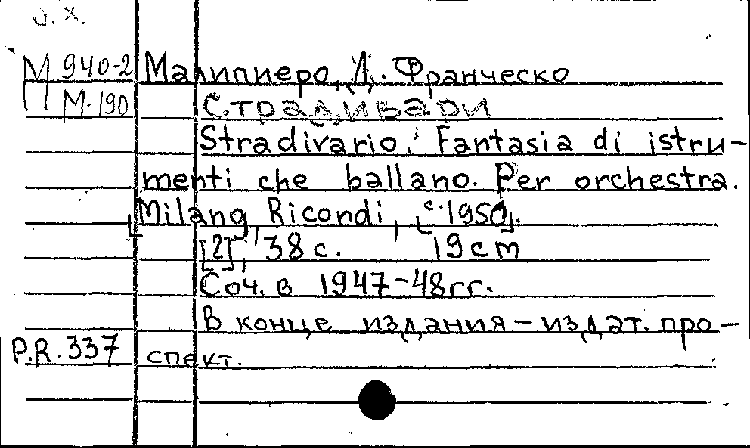 М 940-2 Малипиеро, Д. Франческо
П М-190 Страдивари
Stradivario. Fantasia di istru-
menti che ballano. Per orchestra.
Milang, Ricondi, c. 1950.
[2], 38 с. 19 cm
Соч. в 1947-48 гг.
В конце издания – издат. про-
P.R. 337 спект.